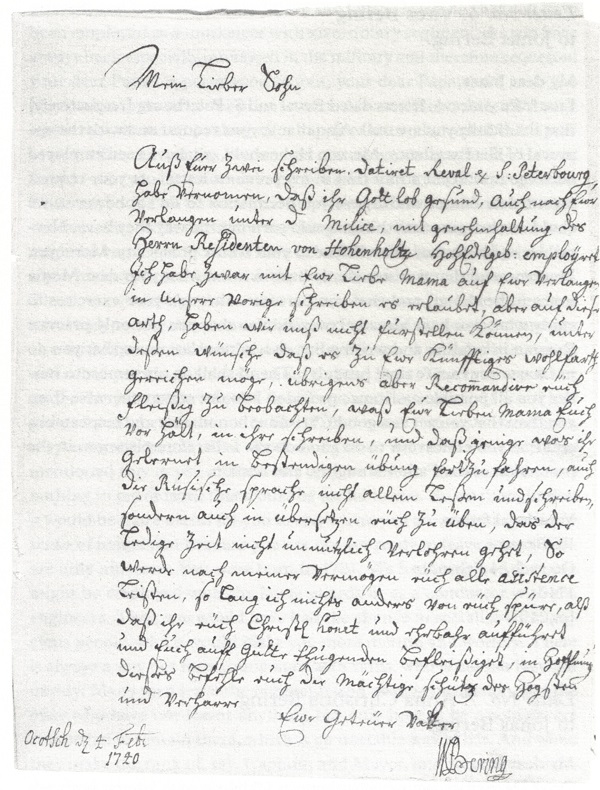 Mein Lieber Sohn
Auß Eure Zwen schreiben. datiret Reval & S: Peterbourg,
habe Vernomen, daß ihr Gott lob gesund, auch nach Ewr
Verlangen unter d. Milice, mit genehmhaltung des
Herrn Residenten von Hohenholtz Hochedelgeb: employret
Ich habe zwar mit Ewr Lieber Mama auf Ewr Verlangen
in unserr Vorige schreiben es erlaubet, aber auf diese
arth haben wir unß nicht fürstellen können, unter
deßen wünsche daß es zu Ewr Künfftiges wohlfart
gereichen möge, übrigens aber Recomandire euch
fleißig zu beobachten, waß Ewr Lieben Mama Euch
Vor hält, in ihre schreiben, und daß genige was ihr
Gelernet in bestendigen übung fortzufahren, auch
die Rusische sprache nicht allein Leßen und schreiben,
sondern auch in übersetzen euch zu üben, das der
Ledige Zeit nicht unnützlich Verlohren gehet, So
werde nach meiner Vermögen euch alle assistence
Leisten, so lang ich nichts anders von euch spüre, alß
daß ihr euch Christl honet und ehrbahr aufführet
und Euch auff Gutte thugenden befleißiget, in Hoffnung
dieses befehle euch der Mächtige schutz des Högsten
und Verharre
Ewr Getreuer Vatter
Ocotsch dl 4 Feb:
1740
WBering